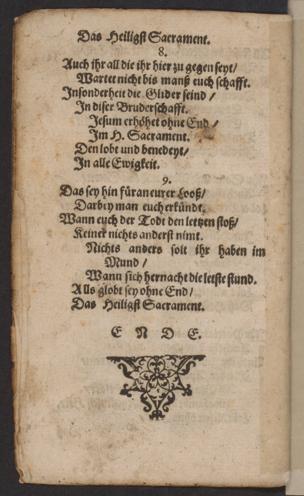 Das Heiligst Sacrament.
8.
Auch ihr all die ihr hier zu gegen seyt/
Wartet nicht bis manß euch schafft.
Insonderheit die Glider seind /
In diser Bruderschafft.
Jesum erhöhet ohne End /
Im H. Sacrament.
Den lobt und benedeyt/
In alle Ewigkeit.
9.
Das sey hin füran eurer Looß/
Darbey man euch erkündt.
Wann euch der Todt den letzen stoß/
Keiner nichts anderst nimt.
Nichts anders solt ihr haben im
Mund /
Wann sich hernacht die letste stund.
Alls globt sey ohne End/
Das Heiligst Sacrament.
E N D E.